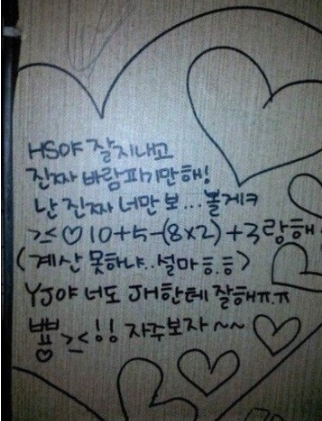 HS야 잘지내고
진짜 바람피기만해!
난 진짜 너만 보...볼게ㅋ
>.< ♡ 10+5-(8×2)+3랑해
(계산 못하냐..설마ㅎ.ㅎ)
YJ야 너도 JH한테 잘해ㅠ.ㅠ
뿅 >.< !! 자주보자~~